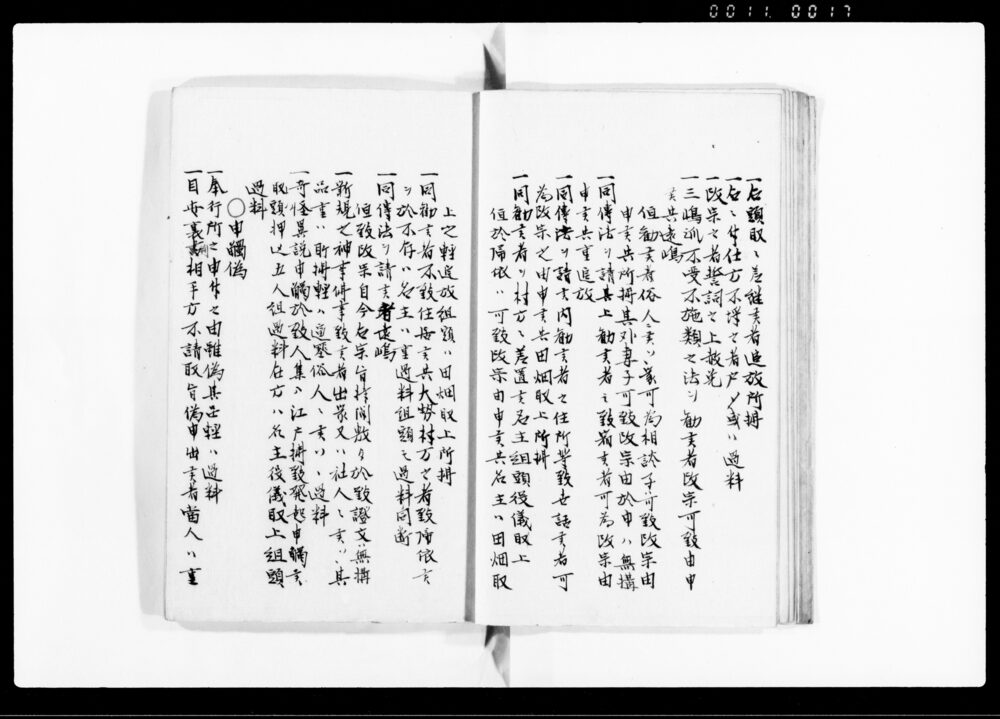 0011. 0017
一右頭取ニ差継候者追放所拂
一右ニ付仕方不埒之者戸〆或ハ過料
一改宗之者誓詞之上赦免
一三嶋派不受不施類之法ヲ勧候者改宗可致由申
候共遠嶋
但勧候者俗人ニ候ハ 可為相談子可致改宗由
申候共所拂其外妻子可致改宗由於申ハ無構
一同傳法ヲ請其上勧候者ニ致宿候者可為改宗由
申候共重追放
一同傳法ヲ請候内勧候者之住所等致世話候者可
為改宗之由申候共田畑取上所拂
一同勧候者ヲ村方ニ差置候名主組頭役儀取上
但於帰依ハ可致改宗由申候共名主ハ田畑取
上之軽追放組頭ハ田畑取上所拂
一同勧候者不致住居候共大勢村方之者致帰依候
ヲ於不存ハ名主ハ重過料組頭ハ過料同断
一同傳法ヲ請候者遠嶋
但致改宗自今右宗旨持間敷旨於致證文ハ無構
一新規之神事佛事致候者出家又ハ社人ニ候ハ其
品重ハ所拂軽ハ逼塞俗人ニ候ハ過料
一奇怪異説申觸於致人集ハ江戸拂致発起申觸候
頭取押込五人組過料在方ハ名主役儀取上組頭
過料
○申觸偽
一奉行所之申付之由雖偽其品軽ハ過料
一目安裏書相手方不請取旨偽申出候者當人ハ重